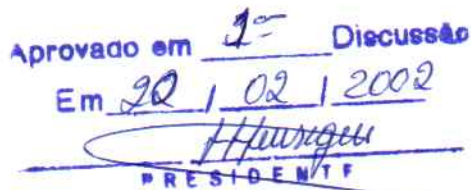 Aprovado em 1ª Discussão
Em 20 / 02 / 2002
PRESIDENTE